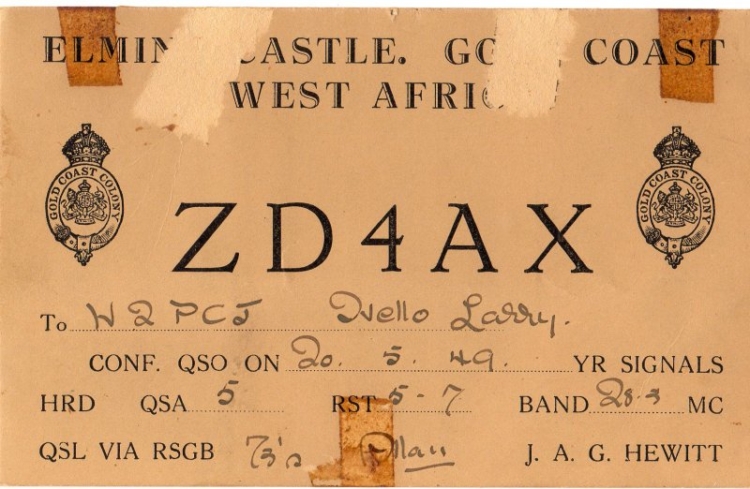 ELMIN CASTLE. GO COAST
WEST AFRIC
GOLD COAST COLONY
GOLD COAST COLONY
ZD4AX
To W2PCJ Hello Larry.
CONF. QSO ON 20. 5. 49. YR SIGNALS
HRD QSA 5 RST 5-7 BAND 28.3 MC
QSL VIA RSGB 73's Allan J. A. G. HEWITT